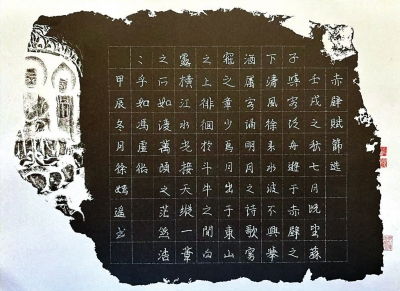 赤壁賦節選
壬戌之秋七月既望蘇
子與客泛舟遊于赤壁之
下清風徐来水波不興舉
酒屬客誦明月之诗歌窈
窕之章少焉月出于東山
之上徘徊於斗牛之間白
露横江水光接天縱一葦
之所如凌萬頃之茫然浩
〻乎如馮虛御
甲辰冬月徐遥书